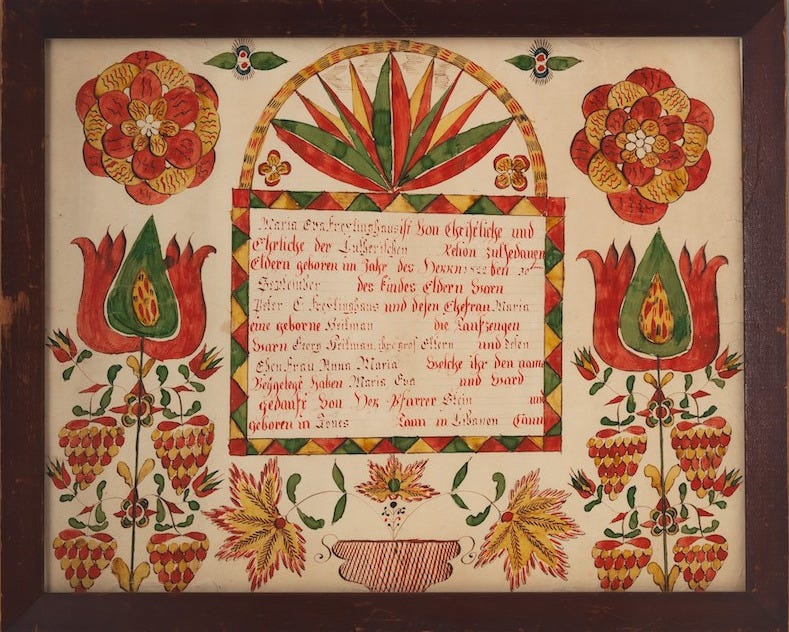 Maria Eva Freylinghaus ist Von Christliche und
Ehrliche der Lutherischen Zugedanen
Eldern geboren im Jahr des Herrn 1822 den
September des Kindes Eldern Waren
Peter C Freylinghaus und desen Ehefrau Maria
eine geborne Heilman die Taufzeugen
Waren Georg Heilman, ihre gros Eltern und desen
Ehen Frau Anna Maria Welche ihr den name
Beygelegt haben Maria Eva und Ward
gedauft Von Der Pfarrer Stein
geboren in Taun in Libanon Caun